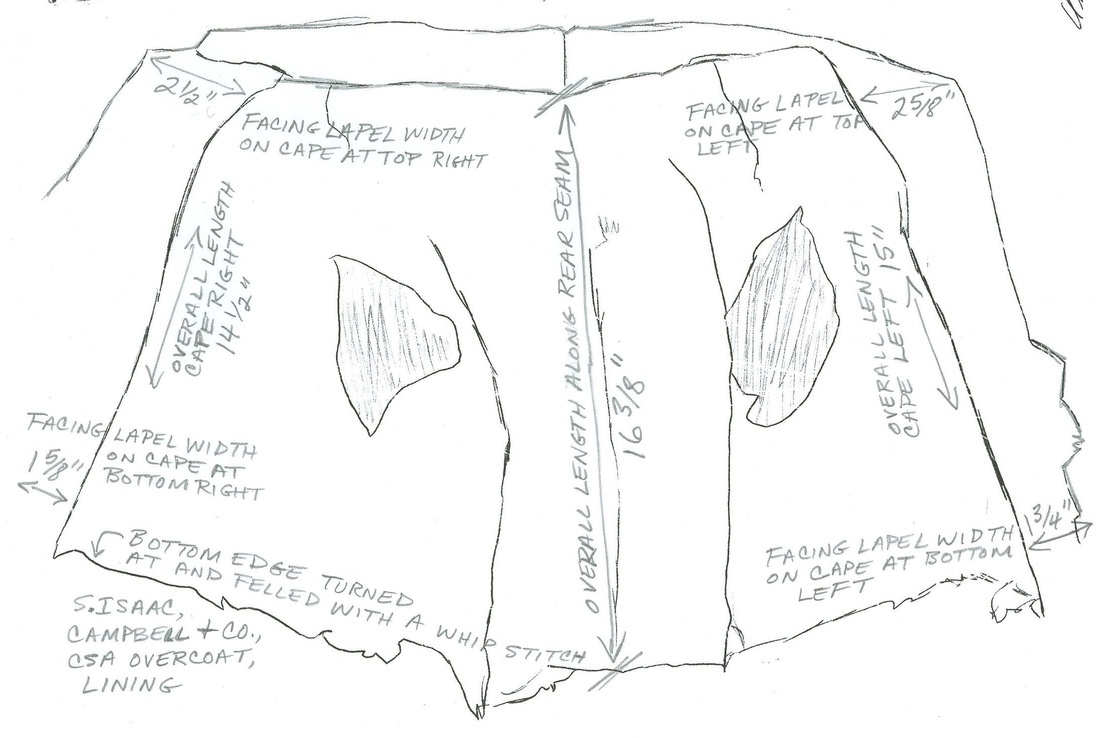 2 1/2"
FACING LAPEL WIDTH
ON CAPE AT TOP RIGHT
FACING LAPEL
ON CAPE AT TOP
LEFT
2 5/8"
OVERALL LENGTH
CAPE RIGHT
14 1/2"
OVERALL LENGTH ALONG REAR SEAM
16 3/8"
OVERALL LENGTH
CAPE LEFT 15"
FACING LAPEL WIDTH
ON CAPE AT
BOTTOM RIGHT
1 5/8"
BOTTOM EDGE TURNED
AT AND FELLED WITH A WHIP STITCH
FACING LAPEL WIDTH
ON CAPE AT BOTTOM
LEFT
1 3/4"
S. ISAAC,
CAMPBELL + CO.,
CSA OVERCOAT,
LINING